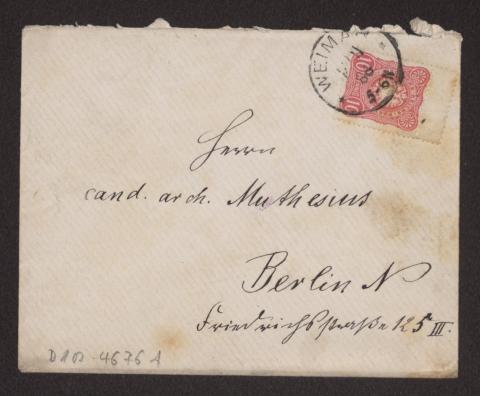 WEIMAR
10 10
Herrn
cand. arch. Muthesius
Berlin N
Friedrichsstraße 125 III.
D 102-4676 1